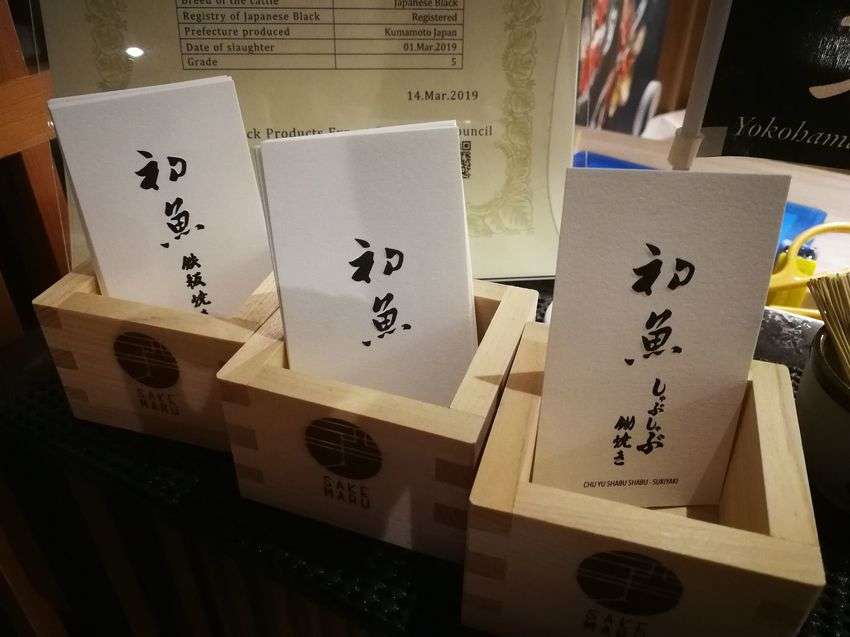 Breed of the cattle Japanese Black
Registry of Japanese Black Registered
Prefecture produced Kumamoto Japan
Date of slaughter 01.Mar.2019
Grade 5
14.Mar.2019
Council
Yokohama
初魚
鉄板焼き
SAKE
MARU
初魚
SAKE
MARU
初魚
しゃぶしゃぶ
鋤焼き
CHU YU SHABU SHABU - SUKIYAKI
SAKE
MARU